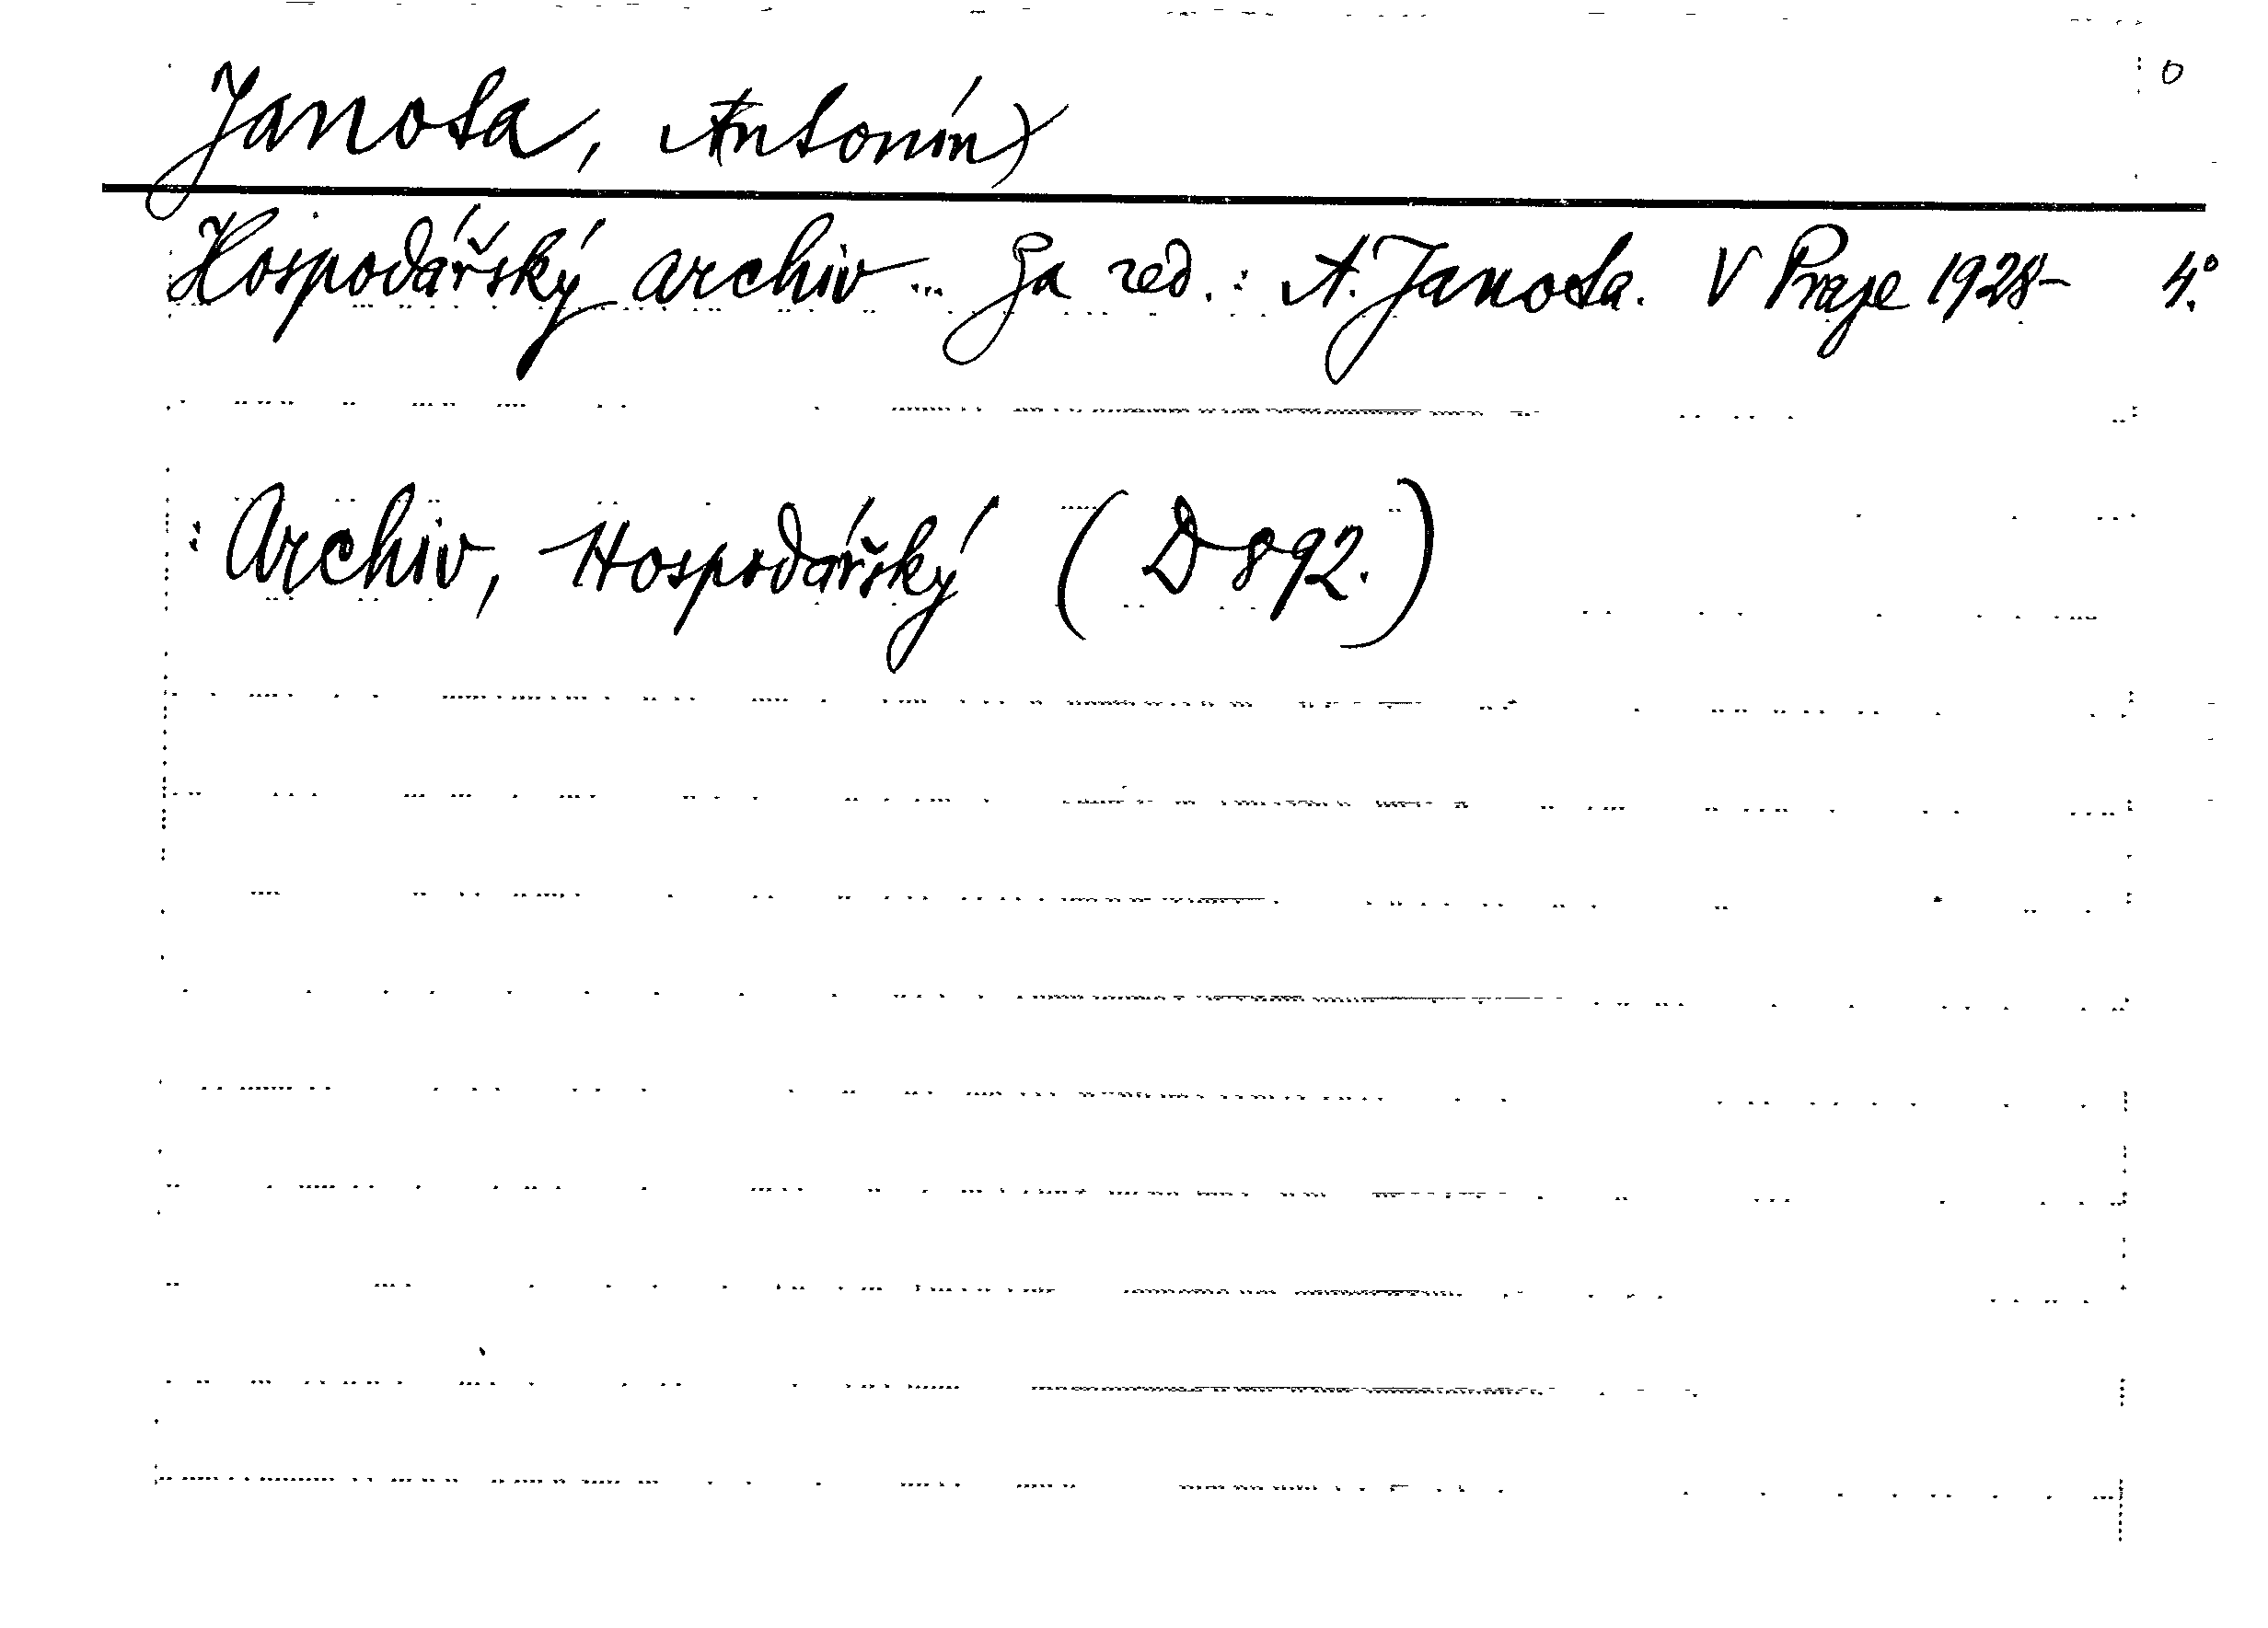 Janota, Antonín
Hospodářský archiv... Za red.: A. Janota. V Praze 1928- 4.°
: Archiv, Hospodářský (D 892.)